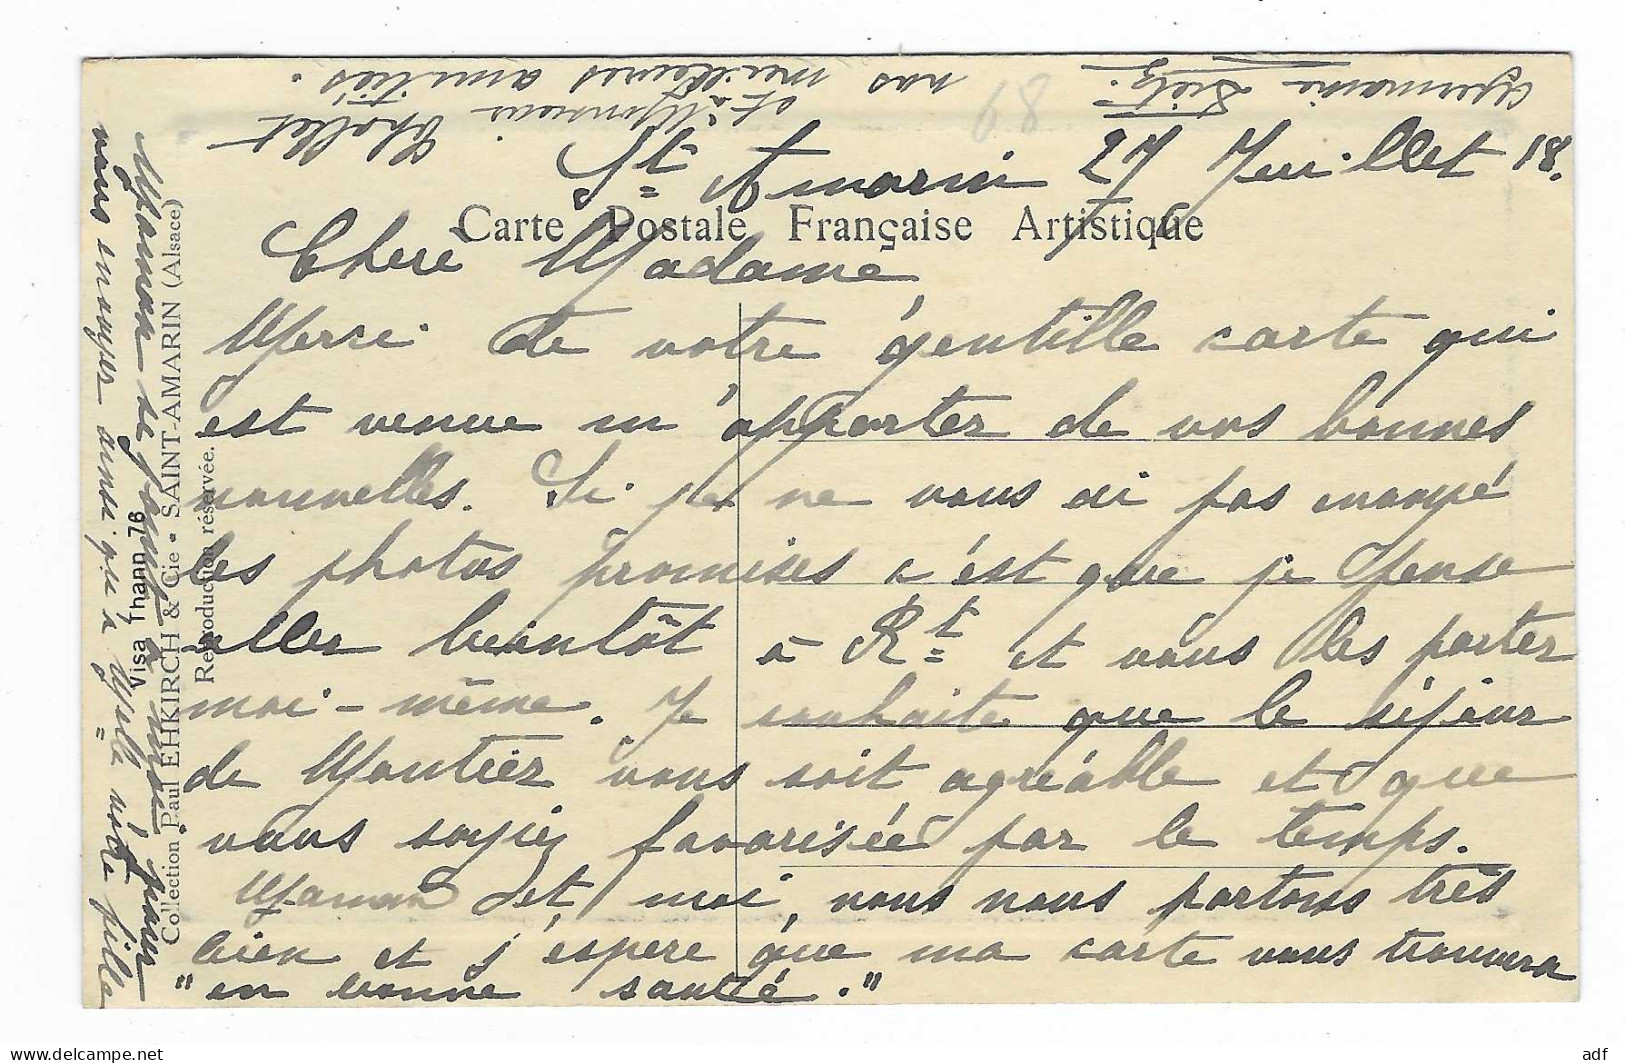 St Amarin 27 Juillet 18.
Carte Postale Française Artistique
Chère Madame
Merci de votre gentille carte qui
est venue m'apporter de vos bonnes
nouvelles. Si je ne vous ai pas envoyé
les photos promises c'est que je pense
aller bientôt à Rt et vous les porter
moi-même. Je souhaite que le séjour
de Moutier vous soit agréable et que
vous soyiez favorisée par le temps.
Maman et moi, nous nous portons très
bien et j'espère que ma carte vous trouvera
"en bonne santé."
Maman se joint à moi pour
vous envoyer ainsi qu'à Melle votre fille
et à Monsieur Chollet
nos meilleures amitiés.
Germaine
Visa Thann 76
Collection Paul EHKIRCH & Cie • SAINT-AMARIN (Alsace)
Reproduction réservée.
89
www.delcampe.net
adf